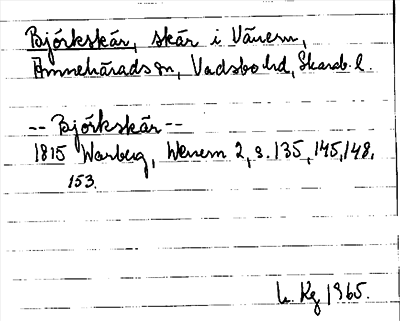 Björkskär, skär i Vänern,
Amnehärads sn, Vadsbo hd, Skarab. l.
-- Björkskär --
1815 Warberg, Wenern 2, s. 135, 145, 148,
153.
Kg 1965.